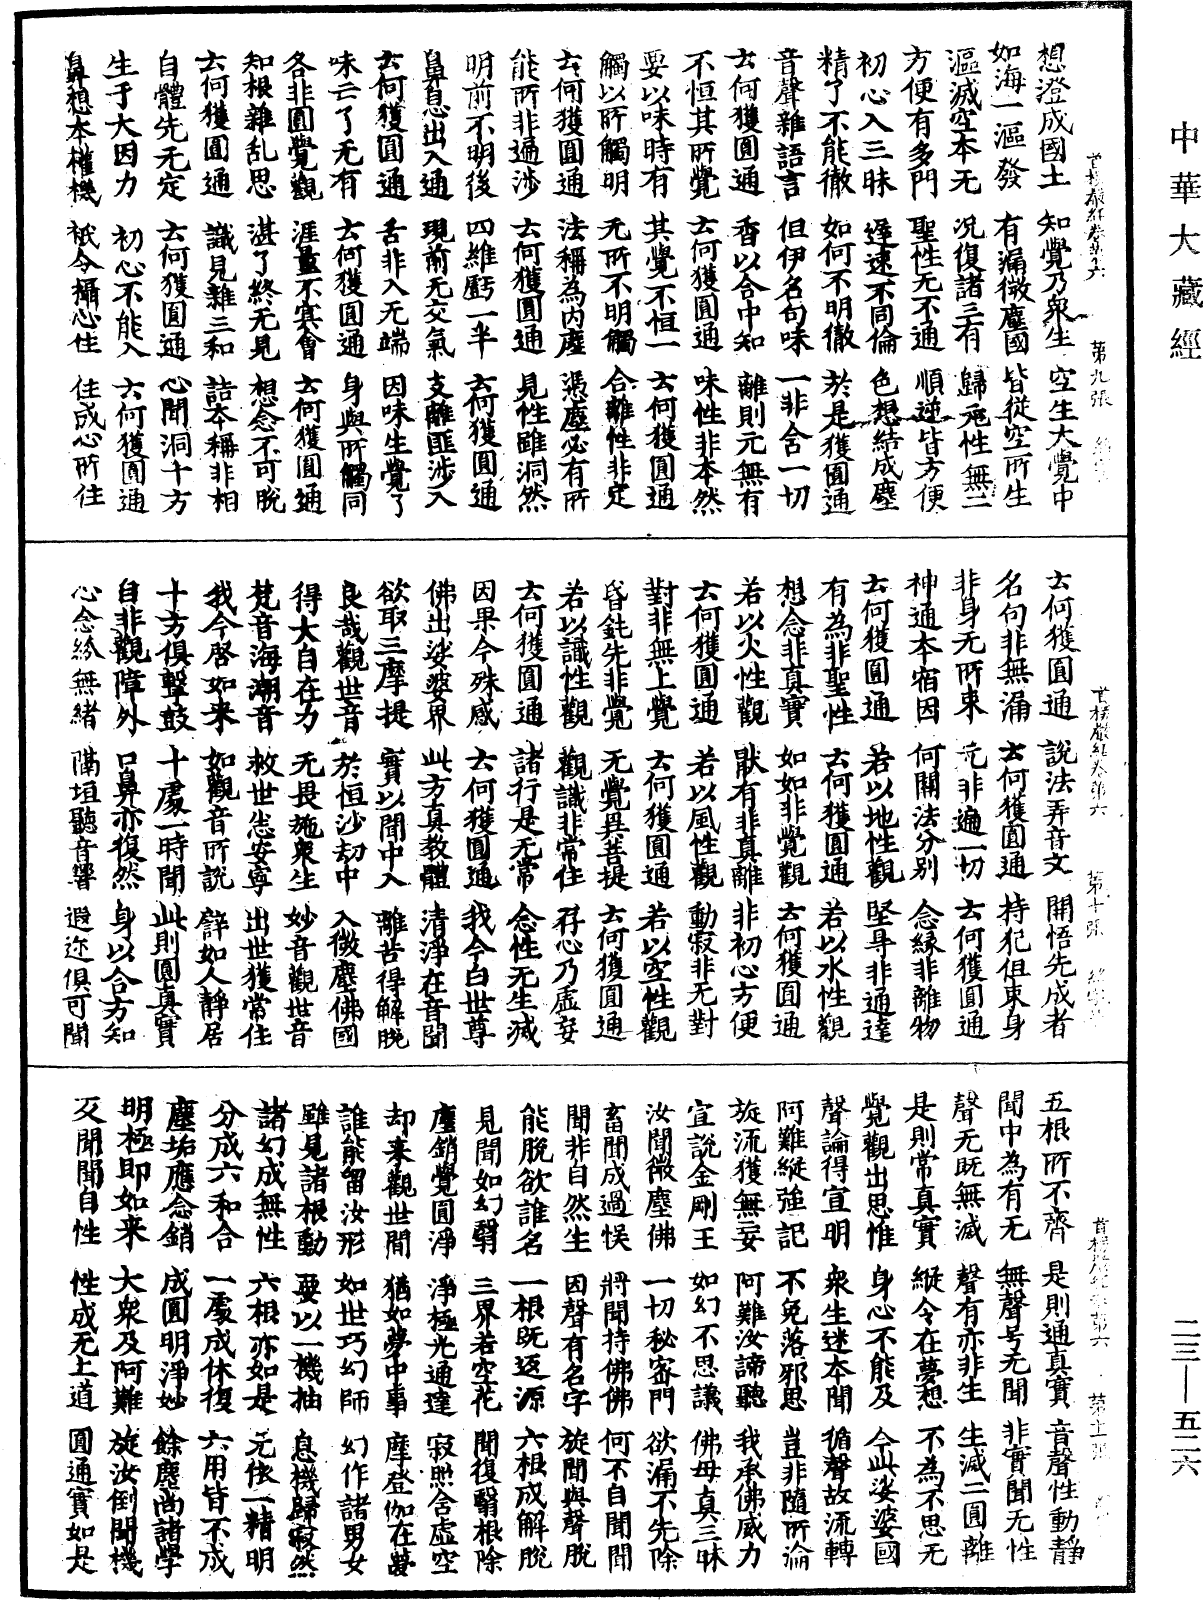 中華大藏經
想澄成國土 知覺乃衆生 空生大覺中
如海一漚發 有漏微塵國 皆從空所生
漚滅空本无 况復諸三有 歸元性無二
方便有多門 聖性无不通 順逆皆方便
初心入三昧 遲速不同倫 色想結成塵
精了不能徹 如何不明徹 於是獲圓通
音聲雜語言 但伊名句味 一非含一切
云何獲圓通 香以合中知 離則元無有
不恒其所覺 云何獲圓通 味性非本然
要以味時有 其覺不恒一 云何獲圓通
觸以所觸明 无所不明觸 合離性非定
云何獲圓通 法稱為内塵 憑塵必有所
能所非遍涉 云何獲圓通 見性雖洞然
明前不明後 四維虧一半 云何獲圓通
鼻息出入通 現前无交氣 支離匪涉入
云何獲圓通 舌非入无端 因味生覺了
味亡了无有 云何獲圓通 身與所觸同
各非圓覺觀 涯量不冥會 云何獲圓通
知根雜乱思 湛了終无見 想念不可脫
云何獲圓通 識見雜三和 詰本稱非相
自體先无定 云何獲圓通 心聞洞十方
生于大因力 初心不能入 云何獲圓通
鼻想本權機 秖令攝心住 住成心所住
首楞嚴經卷第六 第九張
云何獲圓通 說法弄音文 開悟先成者
名句非無漏 云何獲圓通 持犯但束身
非身无所束 元非遍一切 云何獲圓通
神通本宿因 何關法分別 念緣非離物
云何獲圓通 若以地性觀 堅㝵非通達
有為非聖性 云何獲圓通 若以水性觀
想念非真實 如如非覺觀 云何獲圓通
若以火性觀 猒有非真離 非初心方便
云何獲圓通 若以風性觀 動寂非无對
對非無上覺 云何獲圓通 若以空性觀
昏鈍先非覺 无覺異菩提 云何獲圓通
若以識性觀 觀識非常住 存心乃虛妄
云何獲圓通 諸行是无常 念性无生滅
因果今殊感 云何獲圓通 我今白世尊
佛出娑婆界 此方真教體 清淨在音聞
欲取三摩提 實以聞中入 離苦得解脫
良哉觀世音 於恒沙劫中 入微塵佛國
得大自在力 无畏施衆生 妙音觀世音
梵音海潮音 救世悉安寧 出世獲常住
我今啓如来 如觀音所說 譬如人靜居
十方俱擊鼓 十處一時聞 此則圓真實
目非觀障外 口鼻亦復然 身以合方知
心念紛無緒 隔垣聽音響 遐迩俱可聞
首楞嚴經卷第六 第十張
五根所不齊 是則通真實 音聲性動靜
聞中為有无 無聲号无聞 非實聞无性
聲无既無滅 聲有亦非生 生滅二圓離
是則常真實 縱令在夢想 不為不思无
覺觀出思惟 身心不能及 今此娑婆國
聲論得宣明 衆生迷本聞 循聲故流轉
阿難縱強記 不免落邪思 豈非隨所淪
旋流獲無妄 阿難汝諦聽 我承佛威力
宣說金剛王 如幻不思議 佛母真三昧
汝聞微塵佛 一切秘密門 欲漏不先除
畜聞成過悮 將聞持佛佛 何不自聞聞
聞非自然生 因聲有名字 旋聞與聲脫
能脫欲誰名 一根既返源 六根成解脫
見聞如幻翳 三界若空花 聞復翳根除
塵銷覺圓淨 淨極光通達 寂照含虛空
却来觀世間 猶如夢中事 摩登伽在夢
誰能留汝形 如世巧幻師 幻作諸男女
雖見諸根動 要以一機抽 息機歸寂然
諸幻成無性 六根亦如是 元依一精明
分成六和合 一處成休復 六用皆不成
塵垢應念銷 成圓明淨妙 餘塵尚諸學
明極即如来 大衆及阿難 旋汝倒聞機
反聞聞自性 性成无上道 圓通實如是
首楞嚴經卷第六 第十一張
二三—五二六